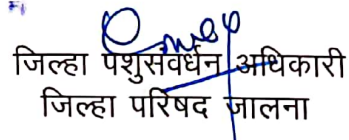 जिल्हा पशुसंवर्धन अधिकारी
जिल्हा परिषद जालना